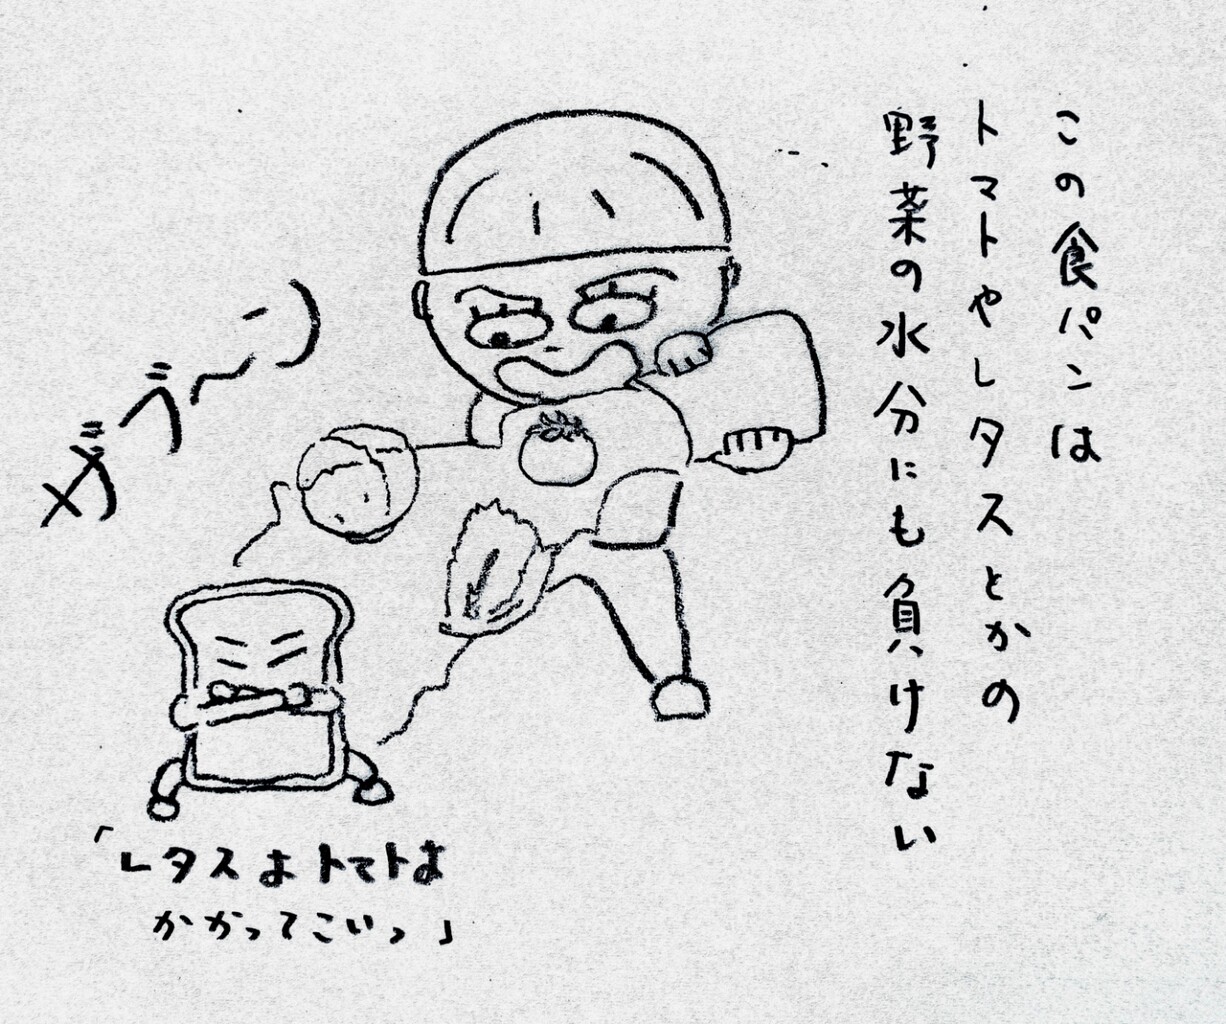 この食パンは
トマトやレタスとかの
野菜の水分にも負けない
ガブーっ
「レタスよトマトよ
かかってこいっ」